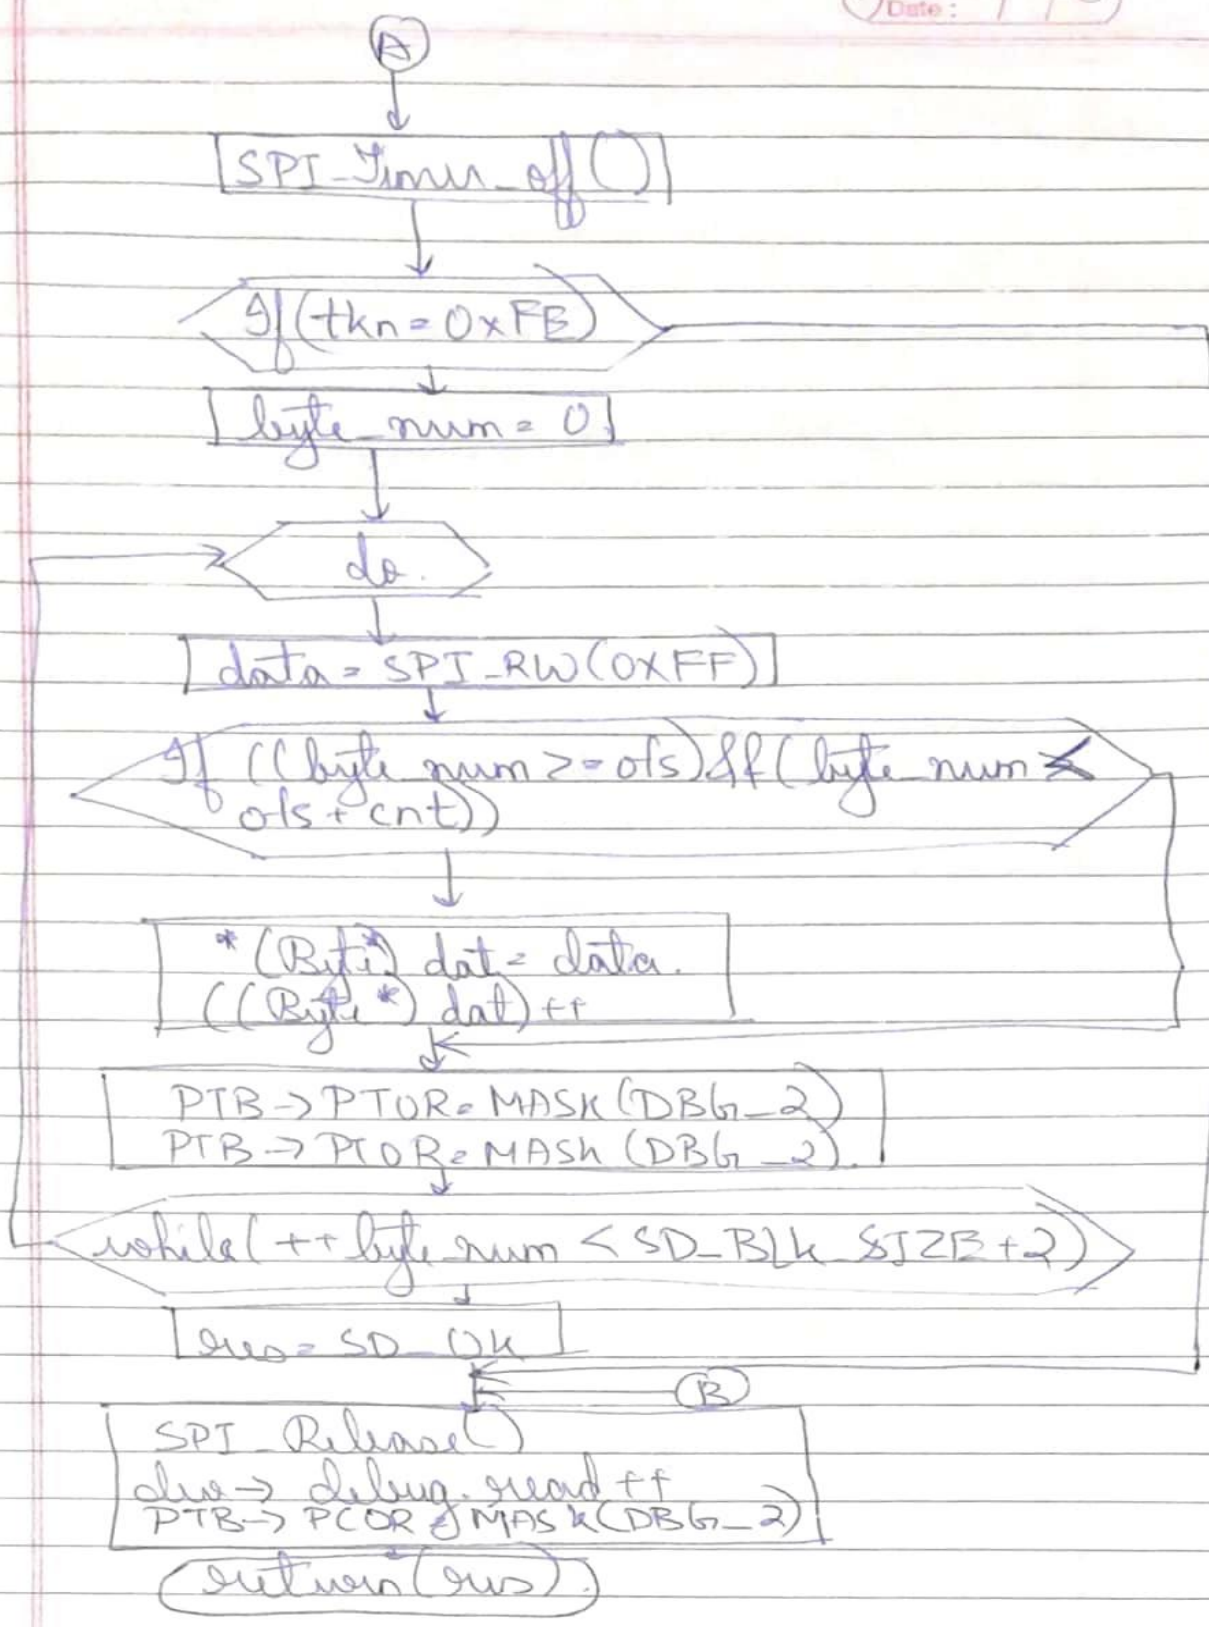 Date: / /
A
SPI_Timer_off()
If (tkn = 0xFE)
byte_num = 0
do.
data = SPI_RW(0XFF)
If ((byte_num >= ofs) && (byte_num <
ofs + cnt))
*(Byte*) dat = data.
((Byte*) dat)++
PTB->PTOR = MASK(DBG_2)
PTB->PTOR = MASK(DBG_2).
while(++byte_num < SD_BLK_SIZE+2)
res = SD_OK
B
SPI_Release()
dev-> debug.read++
PTB-> PCOR = MASK(DBG_2)
return(res).